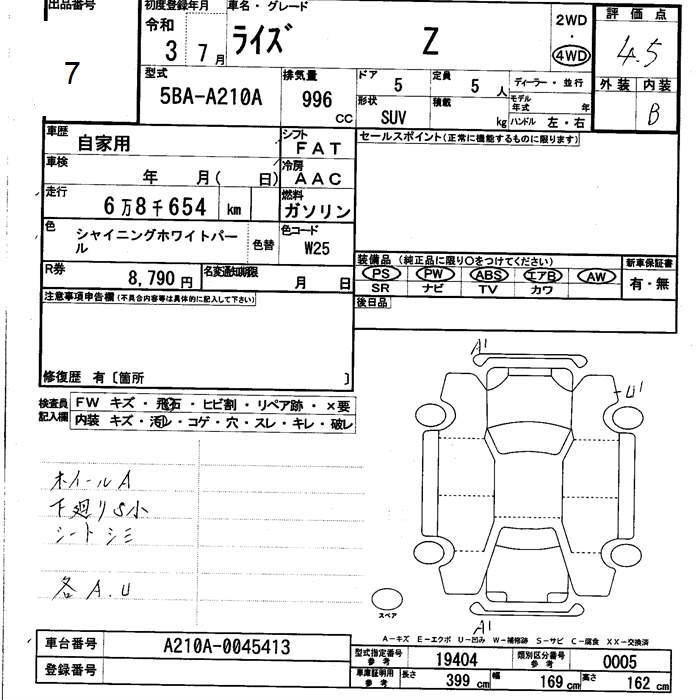 出品番号
7
初度登録年月
令和
3 7月
車名・グレード
ライズ Z
2WD
・
4WD
評価点
4.5
外装 内装
B
型式
5BA-A210A
排気量
996
CC
ドア
5
定員
5 人
ディーラー・並行
形状
SUV
積載
kg
モデル
年式 年
ハンドル 左・右
車歴
自家用
シフト
FAT
セールスポイント(正常に機能するものに限ります)
車検
年 月( 日)
冷房
AAC
走行
6万8千654 km
燃料
ガソリン
色
シャイニングホワイトパー
ル
色替
色コード
W25
装備品 (純正品に限り○をつけてください)
新車保証書
PS PW ABS エアB AW
有・無
SR ナビ TV カワ
R券
8,790円
名変通知期限
月 日
後日品
注意事項申告欄(不具合内容等は具体的に記入して下さい)
修復歴 有〔箇所 〕
検査員
記入欄
FW キズ・飛石・ヒビ割・リペア跡・×要
内装 キズ・汚れ・コゲ・穴・スレ・キレ・破レ
ホイールA
下廻りS小
シートシミ
各A.U
A1
U1
スペア
A1
A-キズ E-エクボ U-凹み W-補修跡 S-サビ C-腐食 XX-交換済
車台番号
A210A-0045413
登録番号
型式指定番号
参考
19404
類別区分番号
参考
0005
車庫証明用
参考
長さ
399 cm
幅
169 cm
高さ
162 cm